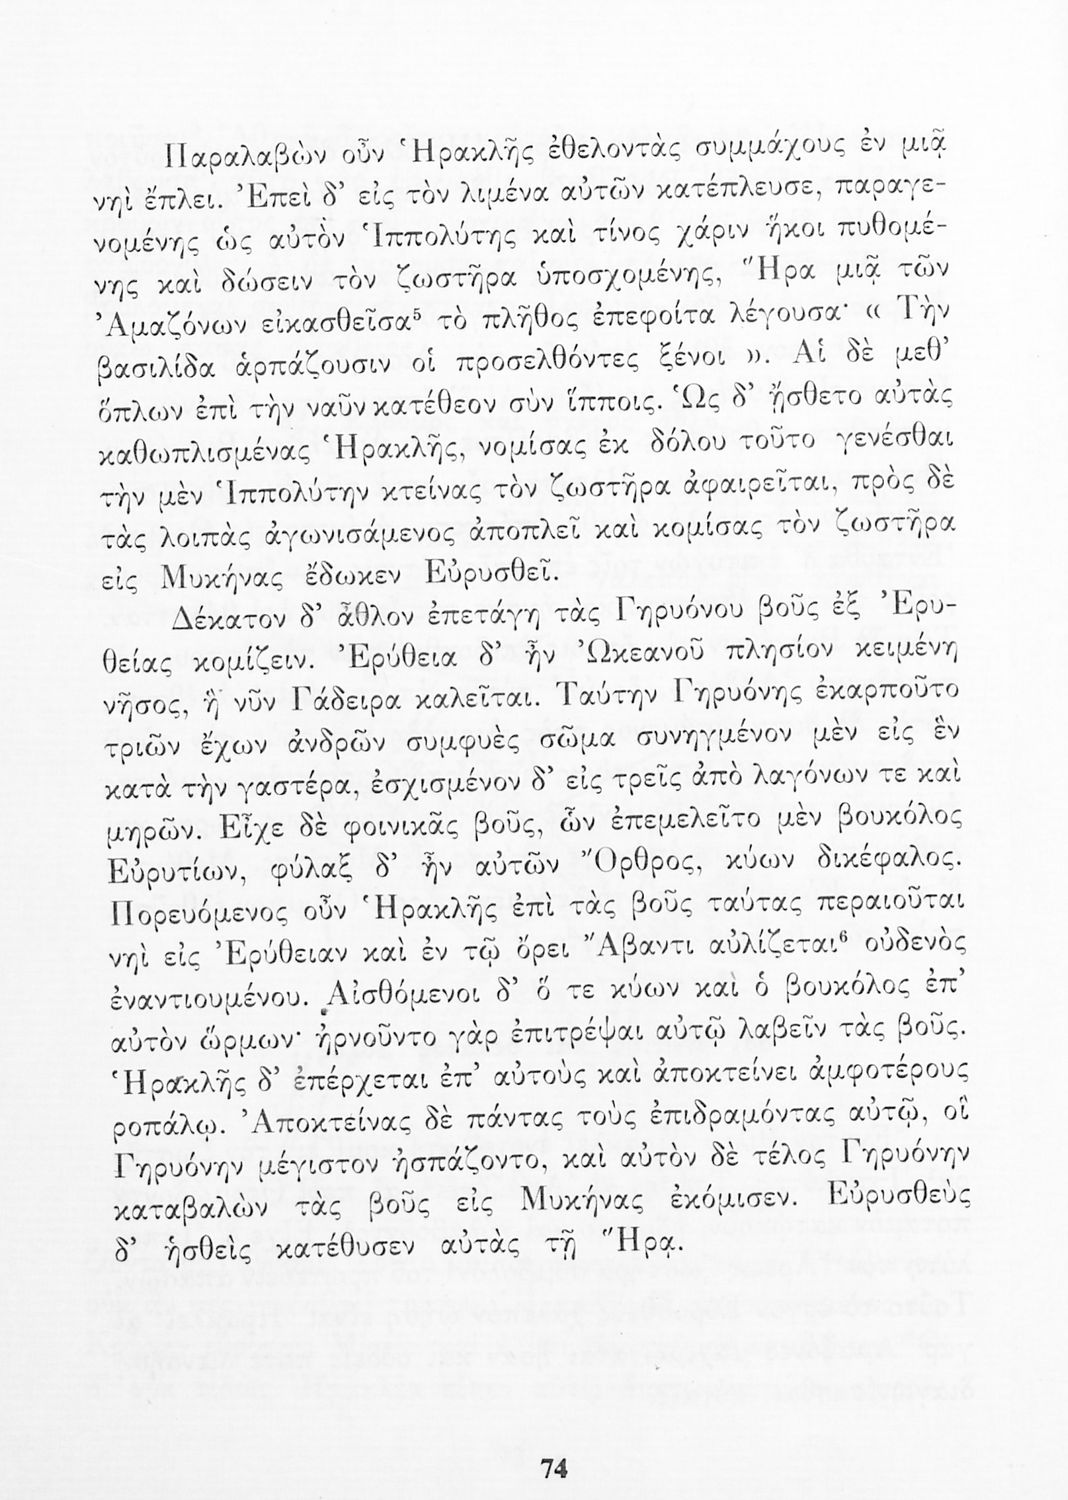 Παραλαβὼν οὖν Ἡρακλῆς ἐθελοντὰς συμμάχους ἐν μιᾷ
νηὶ ἔπλει. Ἐπεὶ δ’ εἰς τὸν λιμένα αὐτῶν κατέπλευσε, παραγε-
νομένης ὡς αὐτὸν Ἱππολύτης καὶ τίνος χάριν ἥκοι πυθομέ-
νης καὶ δώσειν τὸν ζωστῆρα ὑποσχομένης, Ἥρα μιᾷ τῶν
Ἀμαζόνων εἰκασθεῖσα⁵ τὸ πλῆθος ἐπεφοίτα λέγουσα· « Τὴν
βασιλίδα ἁρπάζουσιν οἱ προσελθόντες ξένοι ». Αἱ δὲ μεθ’
ὅπλων ἐπὶ τὴν ναῦν κατέθεον σὺν ἵπποις. Ὡς δ’ ᾔσθετο αὐτὰς
καθωπλισμένας Ἡρακλῆς, νομίσας ἐκ δόλου τοῦτο γενέσθαι
τὴν μὲν Ἱππολύτην κτείνας τὸν ζωστῆρα ἀφαιρεῖται, πρὸς δὲ
τὰς λοιπὰς ἀγωνισάμενος ἀποπλεῖ καὶ κομίσας τὸν ζωστῆρα
εἰς Μυκήνας ἔδωκεν Εὐρυσθεῖ.
Δέκατον δ’ ἆθλον ἐπετάγη τὰς Γηρυόνου βοῦς ἐξ Ἐρυ-
θείας κομίζειν. Ἐρύθεια δ’ ἦν Ὠκεανοῦ πλησίον κειμένη
νῆσος, ἣ νῦν Γάδειρα καλεῖται. Ταύτην Γηρυόνης ἐκαρποῦτο
τριῶν ἔχων ἀνδρῶν συμφυὲς σῶμα συνηγμένον μὲν εἰς ἓν
κατὰ τὴν γαστέρα, ἐσχισμένον δ’ εἰς τρεῖς ἀπὸ λαγόνων τε καὶ
μηρῶν. Εἶχε δὲ φοινικᾶς βοῦς, ὧν ἐπεμελεῖτο μὲν βουκόλος
Εὐρυτίων, φύλαξ δ’ ἦν αὐτῶν Ὄρθρος, κύων δικέφαλος.
Πορευόμενος οὖν Ἡρακλῆς ἐπὶ τὰς βοῦς ταύτας περαιοῦται
νηὶ εἰς Ἐρύθειαν καὶ ἐν τῷ ὄρει Ἄβαντι αὐλίζεται⁶ οὐδενὸς
ἐναντιουμένου. Αἰσθόμενοι δ’ ὅ τε κύων καὶ ὁ βουκόλος ἐπ’
αὐτὸν ὥρμων· ἠρνοῦντο γὰρ ἐπιτρέψαι αὐτῷ λαβεῖν τὰς βοῦς.
Ἡρακλῆς δ’ ἐπέρχεται ἐπ’ αὐτοὺς καὶ ἀποκτείνει ἀμφοτέρους
ροπάλῳ. Ἀποκτείνας δὲ πάντας τοὺς ἐπιδραμόντας αὐτῷ, οἳ
Γηρυόνην μέγιστον ἠσπάζοντο, καὶ αὐτὸν δὲ τέλος Γηρυόνην
καταβαλὼν τὰς βοῦς εἰς Μυκήνας ἐκόμισεν. Εὐρυσθεὺς
δ’ ἡσθεὶς κατέθυσεν αὐτὰς τῇ Ἥρᾳ.
74